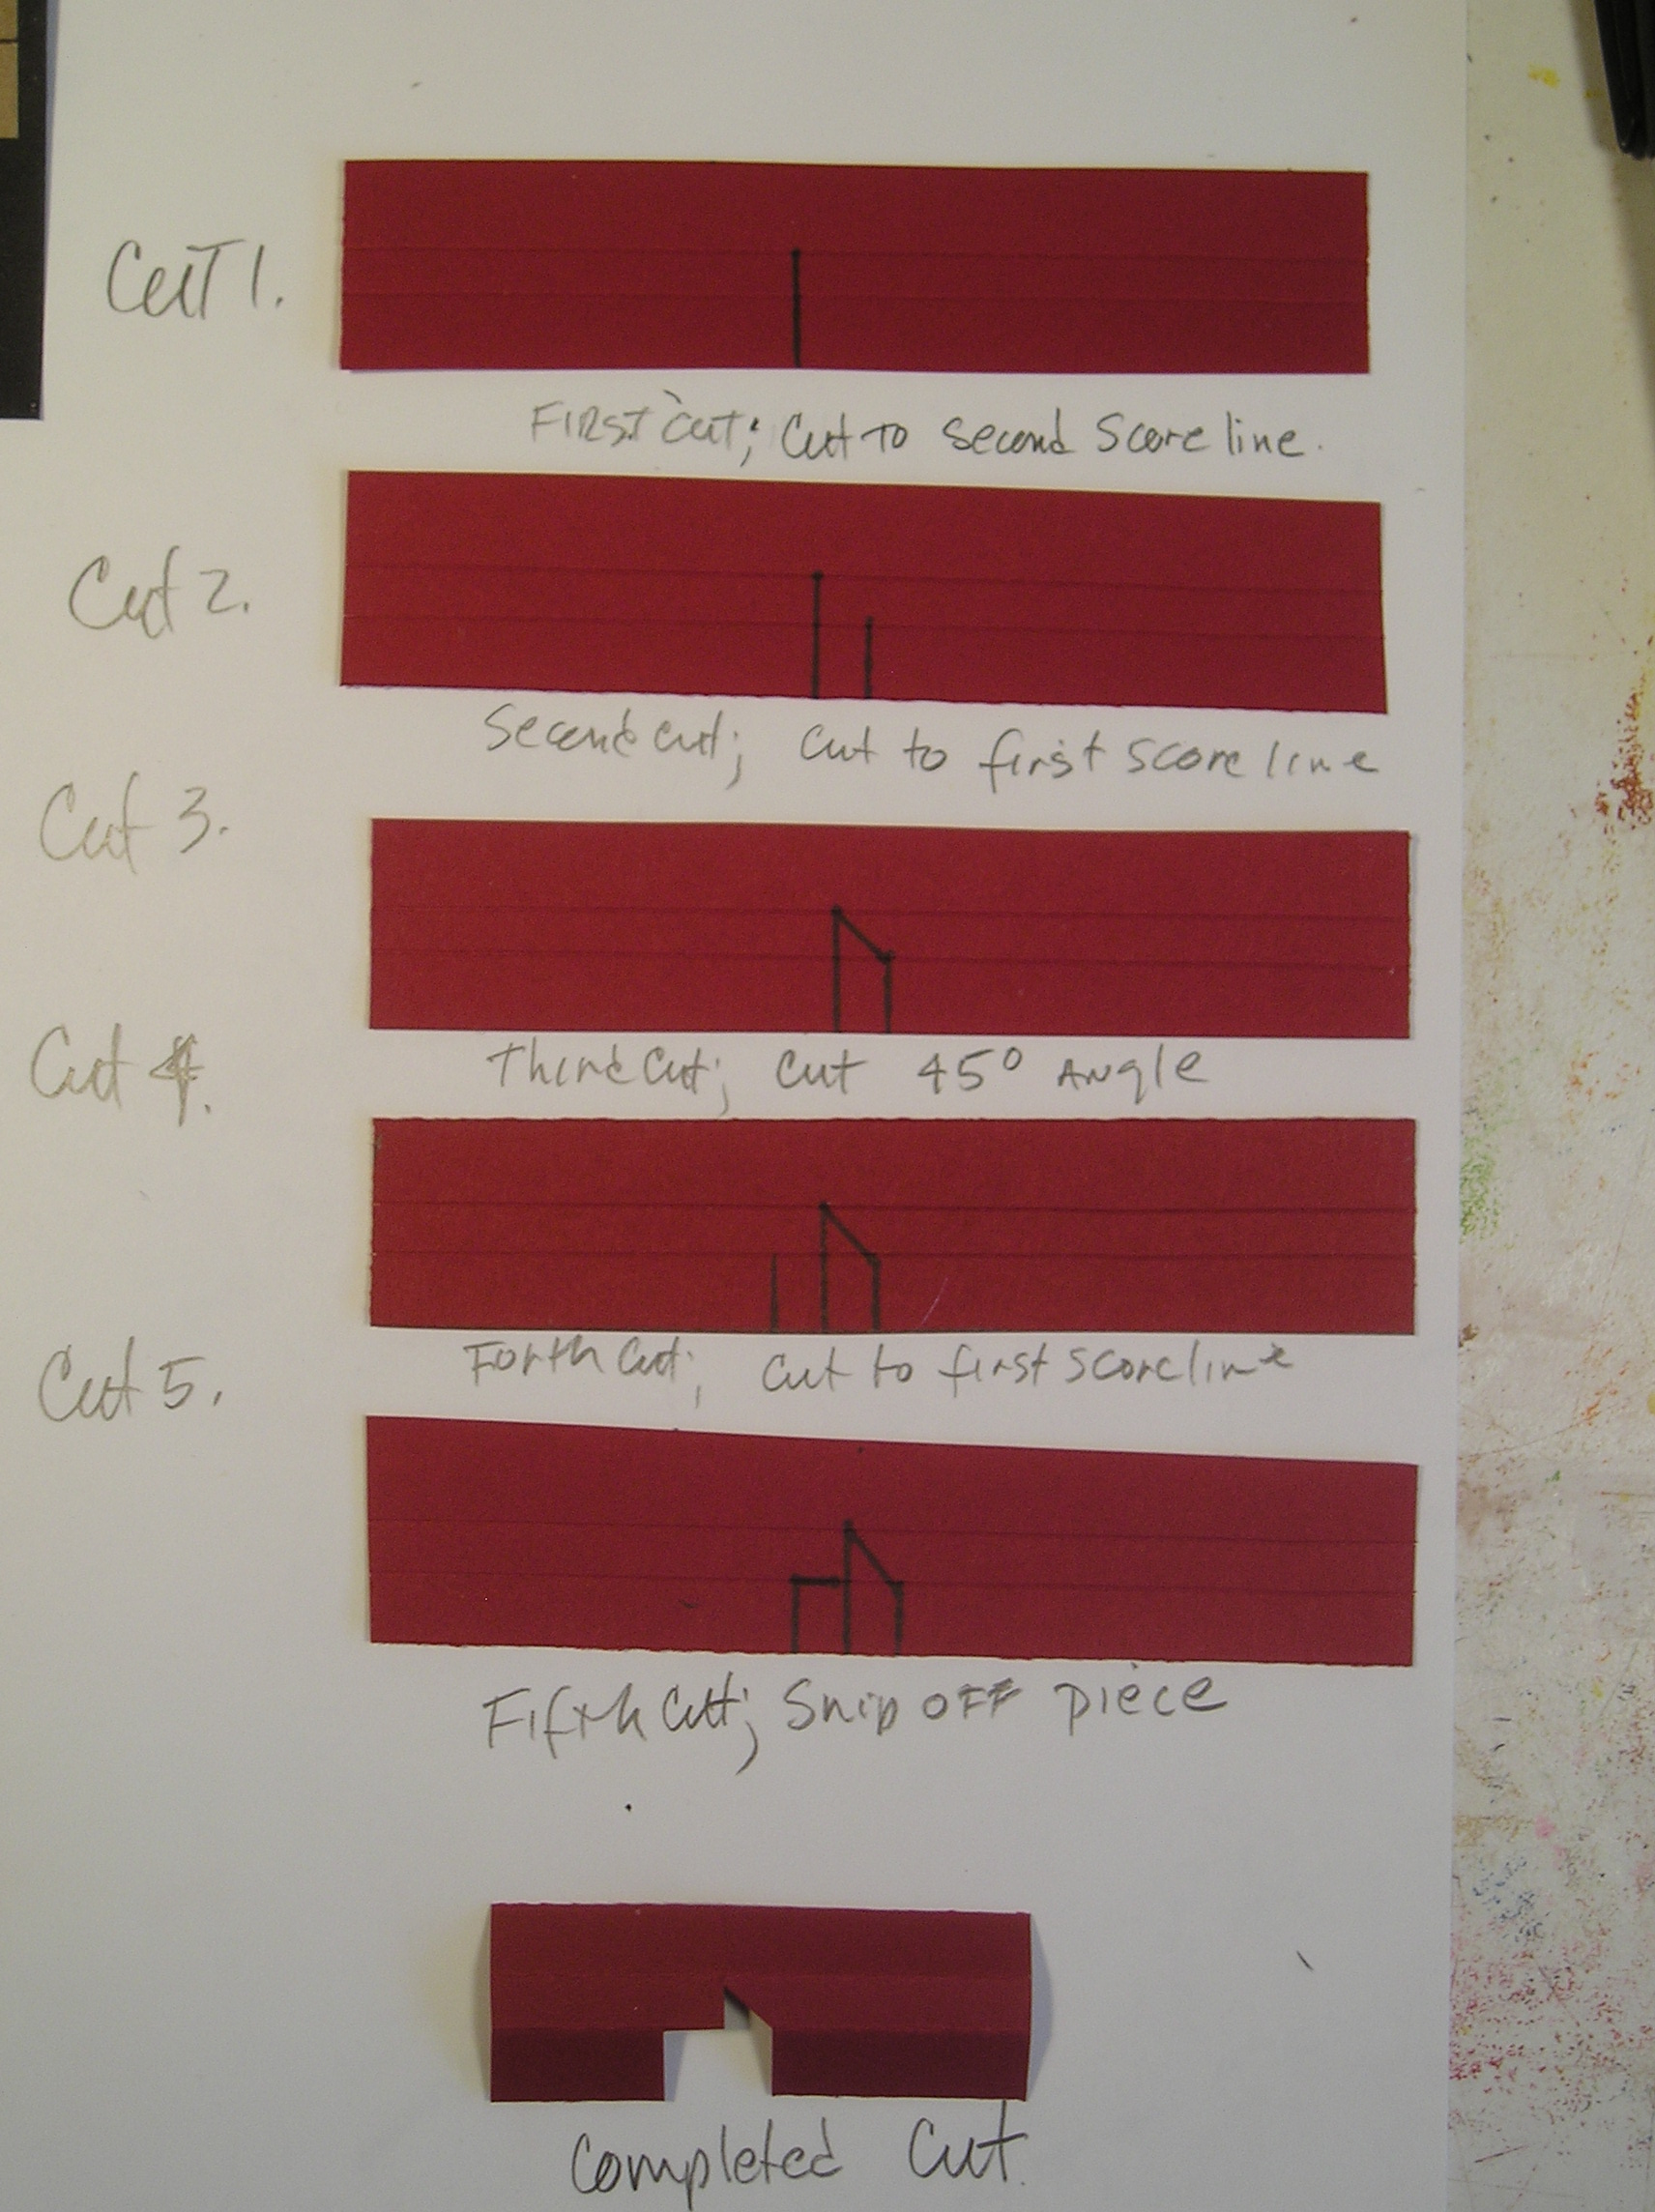 Cut 1.
First cut; Cut to second score line.
Cut 2.
Second cut; Cut to first score line
Cut 3.
Third cut; Cut 45° Angle
Cut 4.
Forth cut; Cut to first score line
Cut 5.
Fifth cut; Snip off piece
Completed Cut.